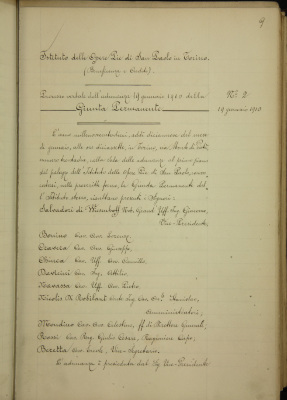 Istituto delle Opere Pie di San Paolo in Torino.
(Beneficenza e Credito).
Processo verbale dell'adunanza 19 gennaio 1910 della
Giunta Permanente
N° 2
19 gennaio 1910
L'anno millenovecentodieci, addì diciannove del mese
di gennaio, alle ore diciassette, in Torino, via Monte di Pietà,
numero trentadue, nella sala delle adunanze al primo piano
del palazzo dell'Istituto delle Opere Pie di San Paolo, convo-
catasi, nelle prescritte forme, la Giunta Permanente del-
l'Istituto stesso, risultano presenti i Signori:
Salvadori di Wiesenhoff Nob. Uff. Ing. Giacomo,
Vice-Presidente,
Bonino Cav. Avv. Lorenzo,
Cravero Cav. Avv. Giuseppe,
Uff. Avv. Camillo,
Cav. Ing. Attilio,
Ravassa Cav. Uff. Pietro
Nicolis di Robilant Ing. Cav. Stanislao,
Amministratori;
Mondino Cav. Avv. Celestino, ff. di Direttore Generale,
Rossi Cav. Rag. Giulio Cesare, Ragioniere Capo,
Beretta Avv. Vice-Segretario.
L'adunanza è presieduta dal Sig. Vice-Presidente